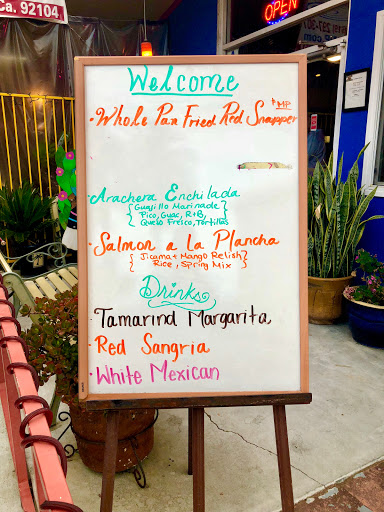 Ca. 92104
OPEN
Welcome
$MP
• Whole Pan Fried Red Snapper
• Arachera Enchilada
{Guajillo Marinade}
{Pico, Guac, R+B,}
{Queso Fresco, Tortillas}
• Salmon a La Plancha
{Jicama + Mango Relish}
{Rice, Spring Mix}
Drinks
• Tamarind Margarita
• Red Sangria
• White Mexican